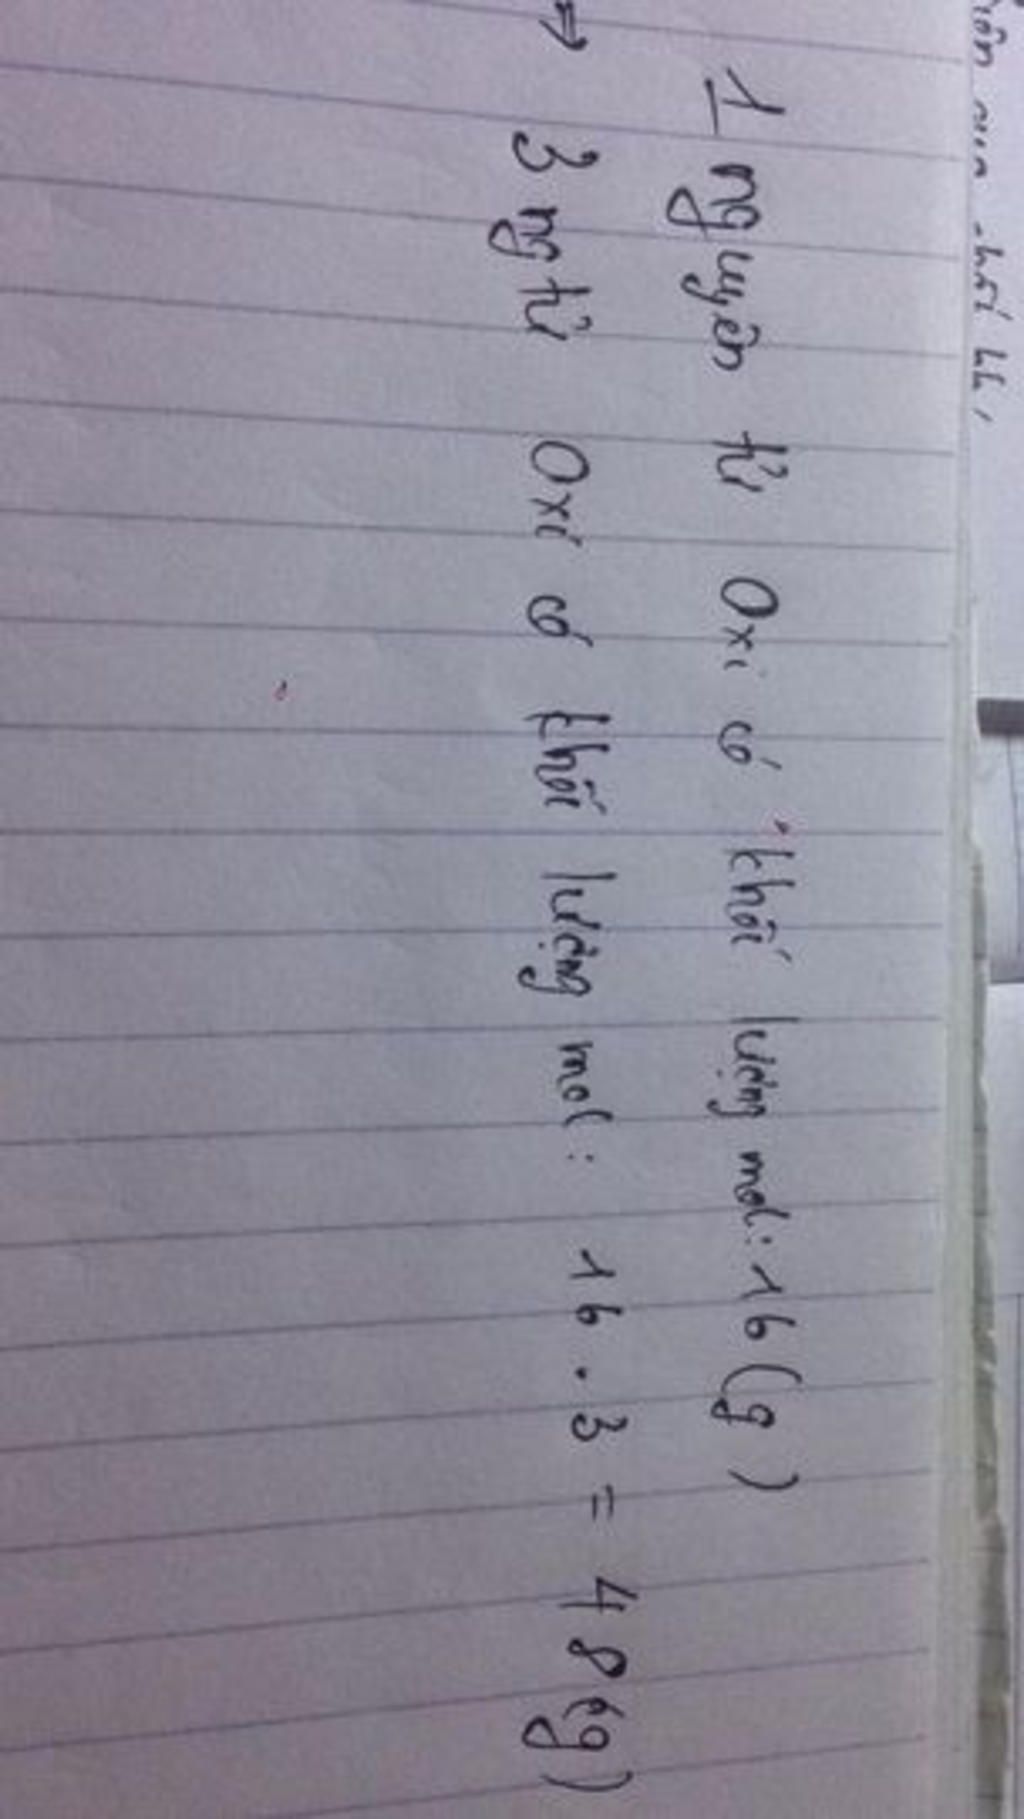 1 nguyên tử Oxi có khối lượng mol: 16 (g)
⇒ 3 ng tử Oxi có khối lượng mol: 16 . 3 = 48 (g)